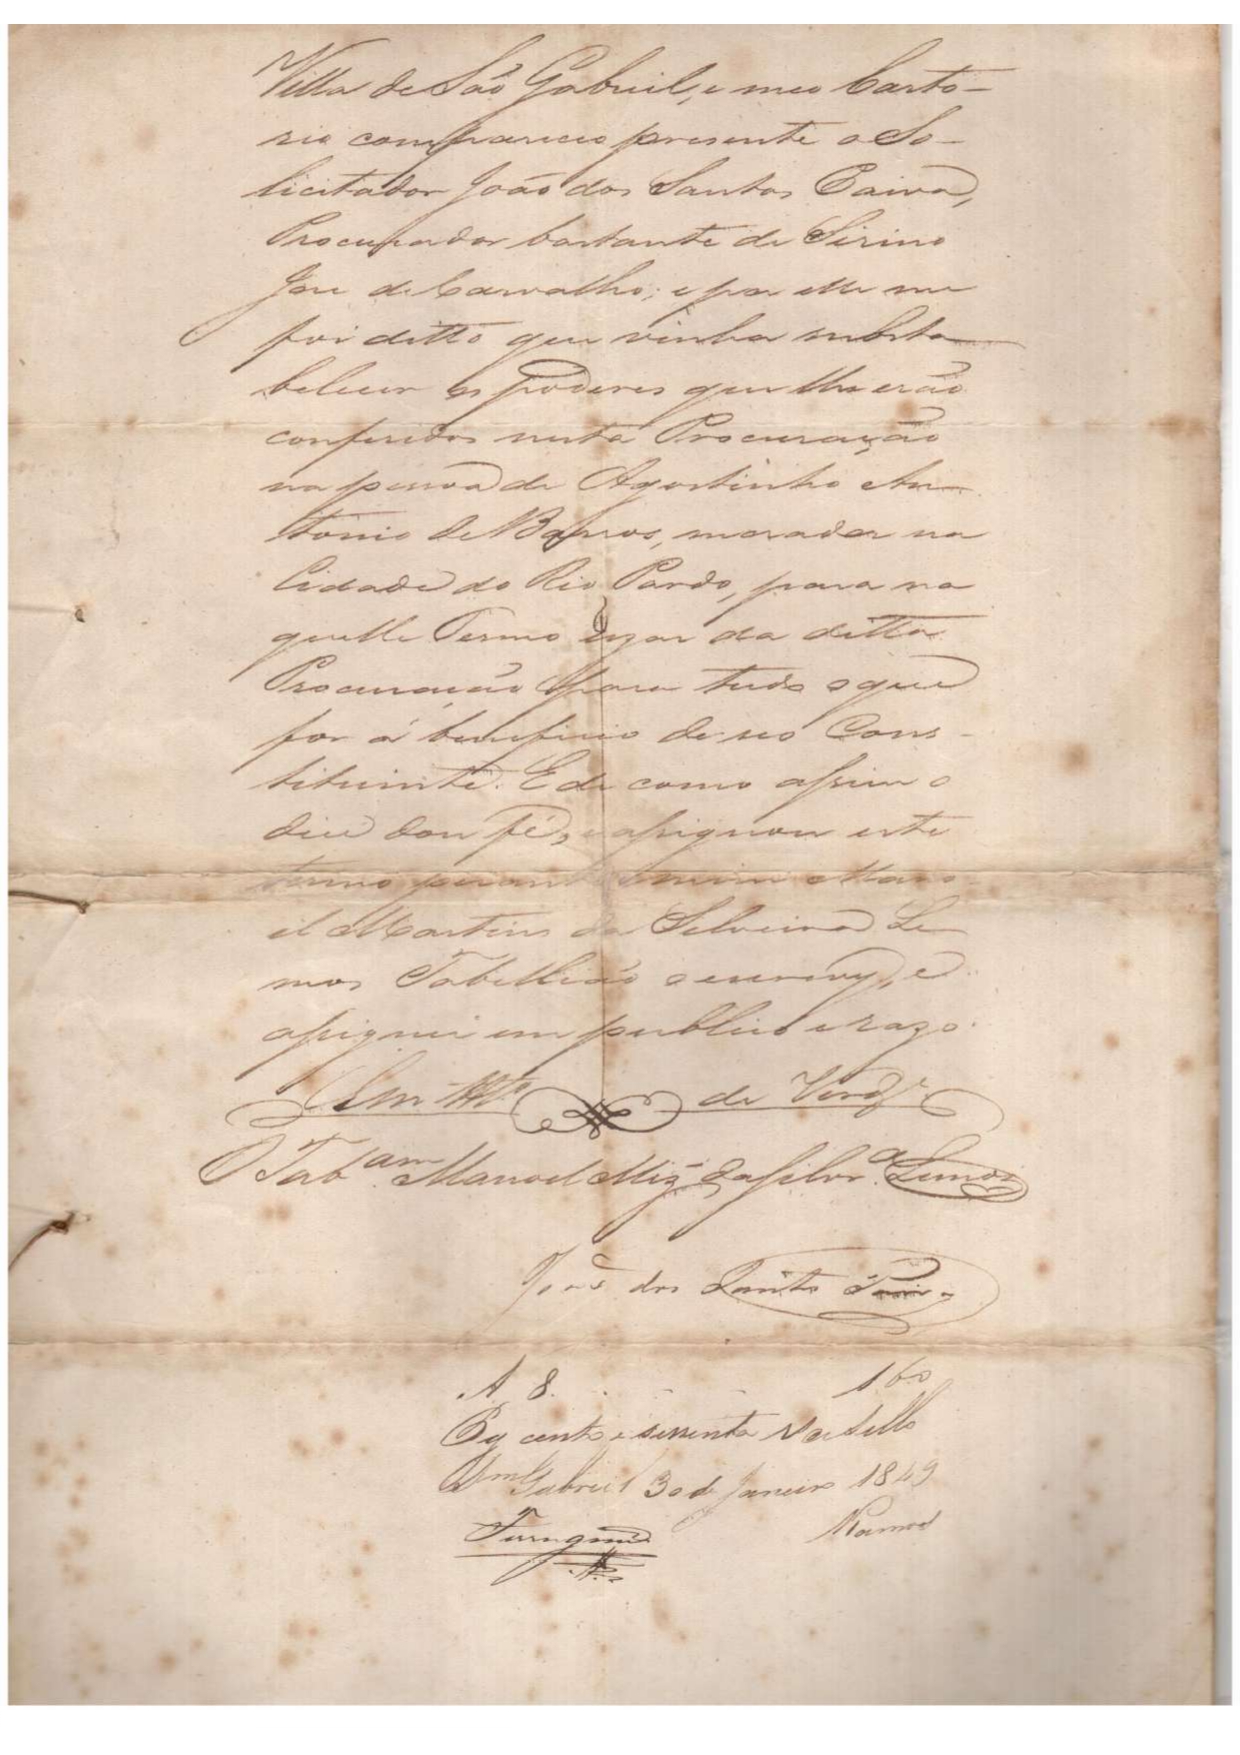 Villa de São Gabriel, e meo Carto-
rio compareceo presente o So-
licitador João dos Santos Paiva,
Procurador bastante de Sirino
Jose de Carvalho; e por elle me
foi ditto que vinha substa
belecer os poderes que lhe erão
conferidos nesta Procuração
na pessoa de Agostinho An-
tonio de Barros, morador na
Cidade do Rio Pardo, para na
quelle Termo uzar da ditta
Procuração para tudo o que
for á beneficio de seo Cons-
tituinte. E de como assim o
dice dou fé, e assignou este
termo perante mim Mano-
el Martins da Silveira Le
mos Tabellião o escrevy, e
assignei em publico e razo.
Em tto de Verde
O Tabam Manoel Miz da Silvra Lemos
João dos Santos Paiva
N 8. 160
Pg cento e sessenta rs de sello
Gabriel 30 de Janeiro 1849
Ramos